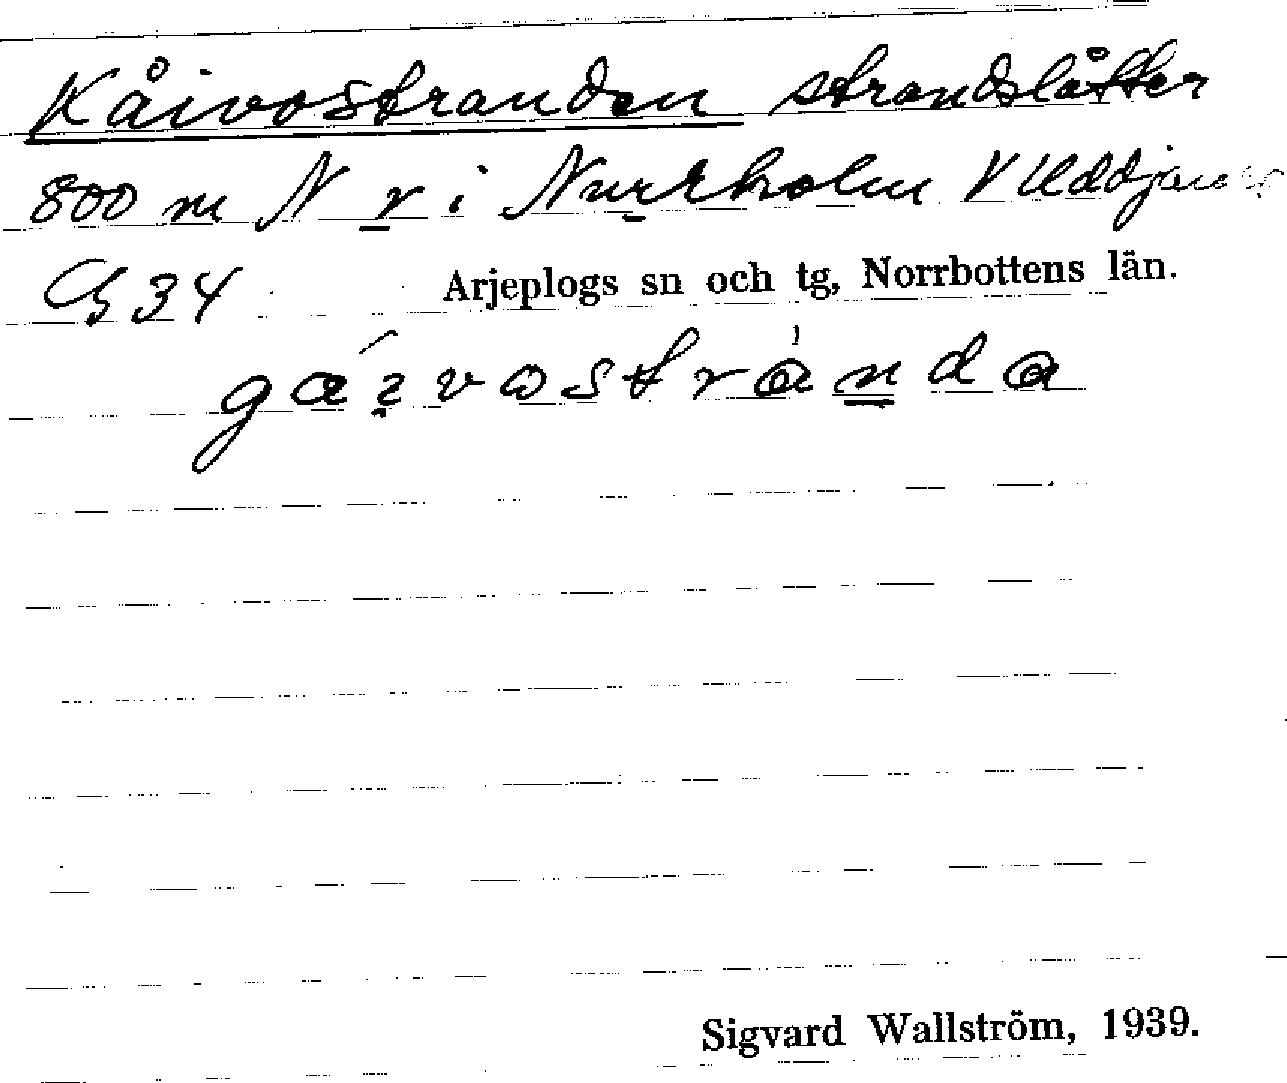 Kåivostranden strandslåtter
800 m N r i Nurrholm V Uddjaur
G 34 Arjeplogs sn och tg, Norrbottens län.
gaívostrànda
Sigvard Wallström, 1939.